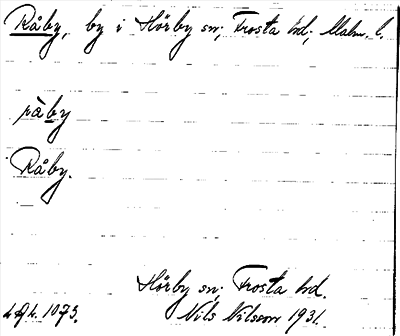 Råby, by i Hörby sn; Frosta hd; Malm. l.
råby
Råby.
Hörby sn; Frosta hd.
Nils Nilsson 1931.
1073.